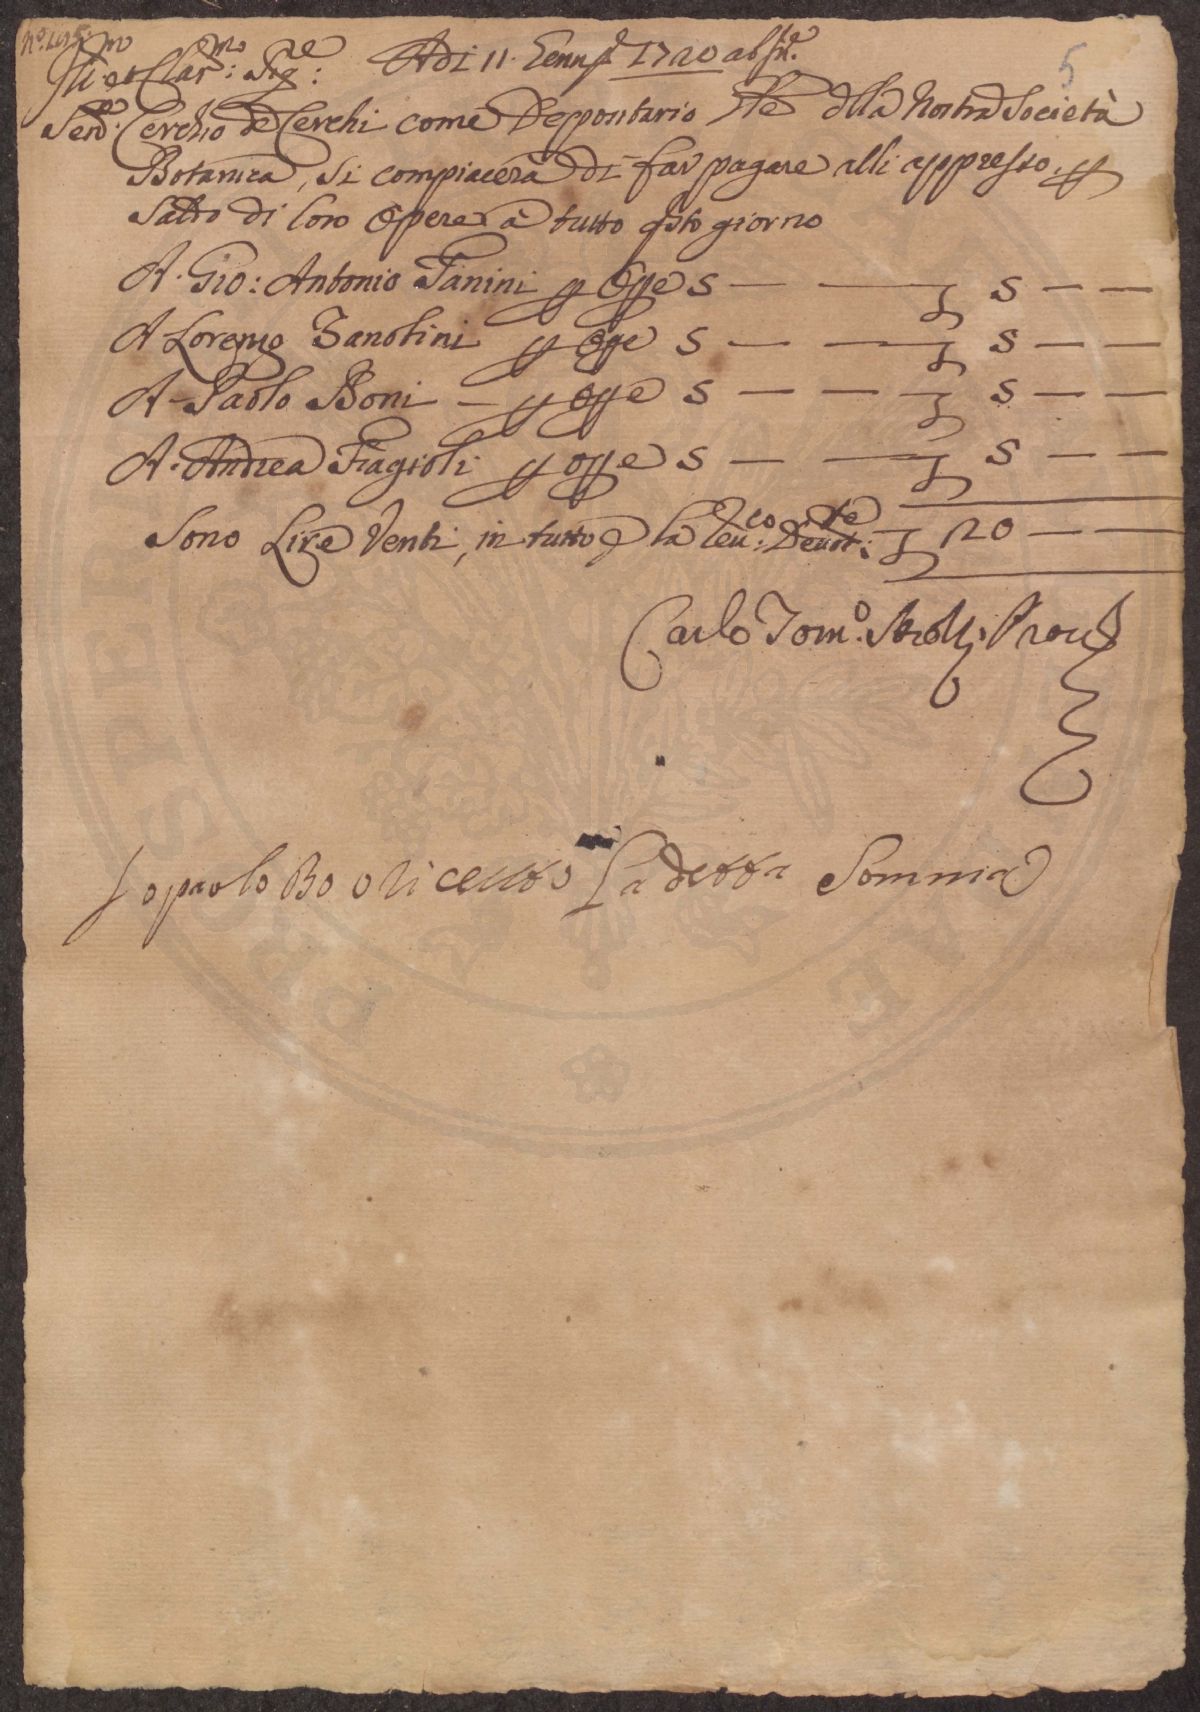 5
Ill.mo et Clar.mo Sig.re Adì 11. Genn.o 1720 ab In.e
Sen.re Cerchio de Cerchi come Depositario dlla Nostra Società
Botanica, Si compiacerà di far pagare alli appresso p
Saldo di loro Opere à tutto qsto giorno
A. Gio: Antonio Fanini p Ope 5 — — 5 — —
A Lorenzo Zanolini p Ope 5 — — — 5 — —
A Paolo Boni — p Ope 5 — — — 5 — —
A. Andrea Fagioli p ope 5 — — 5 — —
Sono Lire Venti, in tutto e la Reu.co Deuot.te 20 — —
Carlo Tom.o Strozzi Prou.re
Io paolo Bo o riceuto La detta Somma
PR